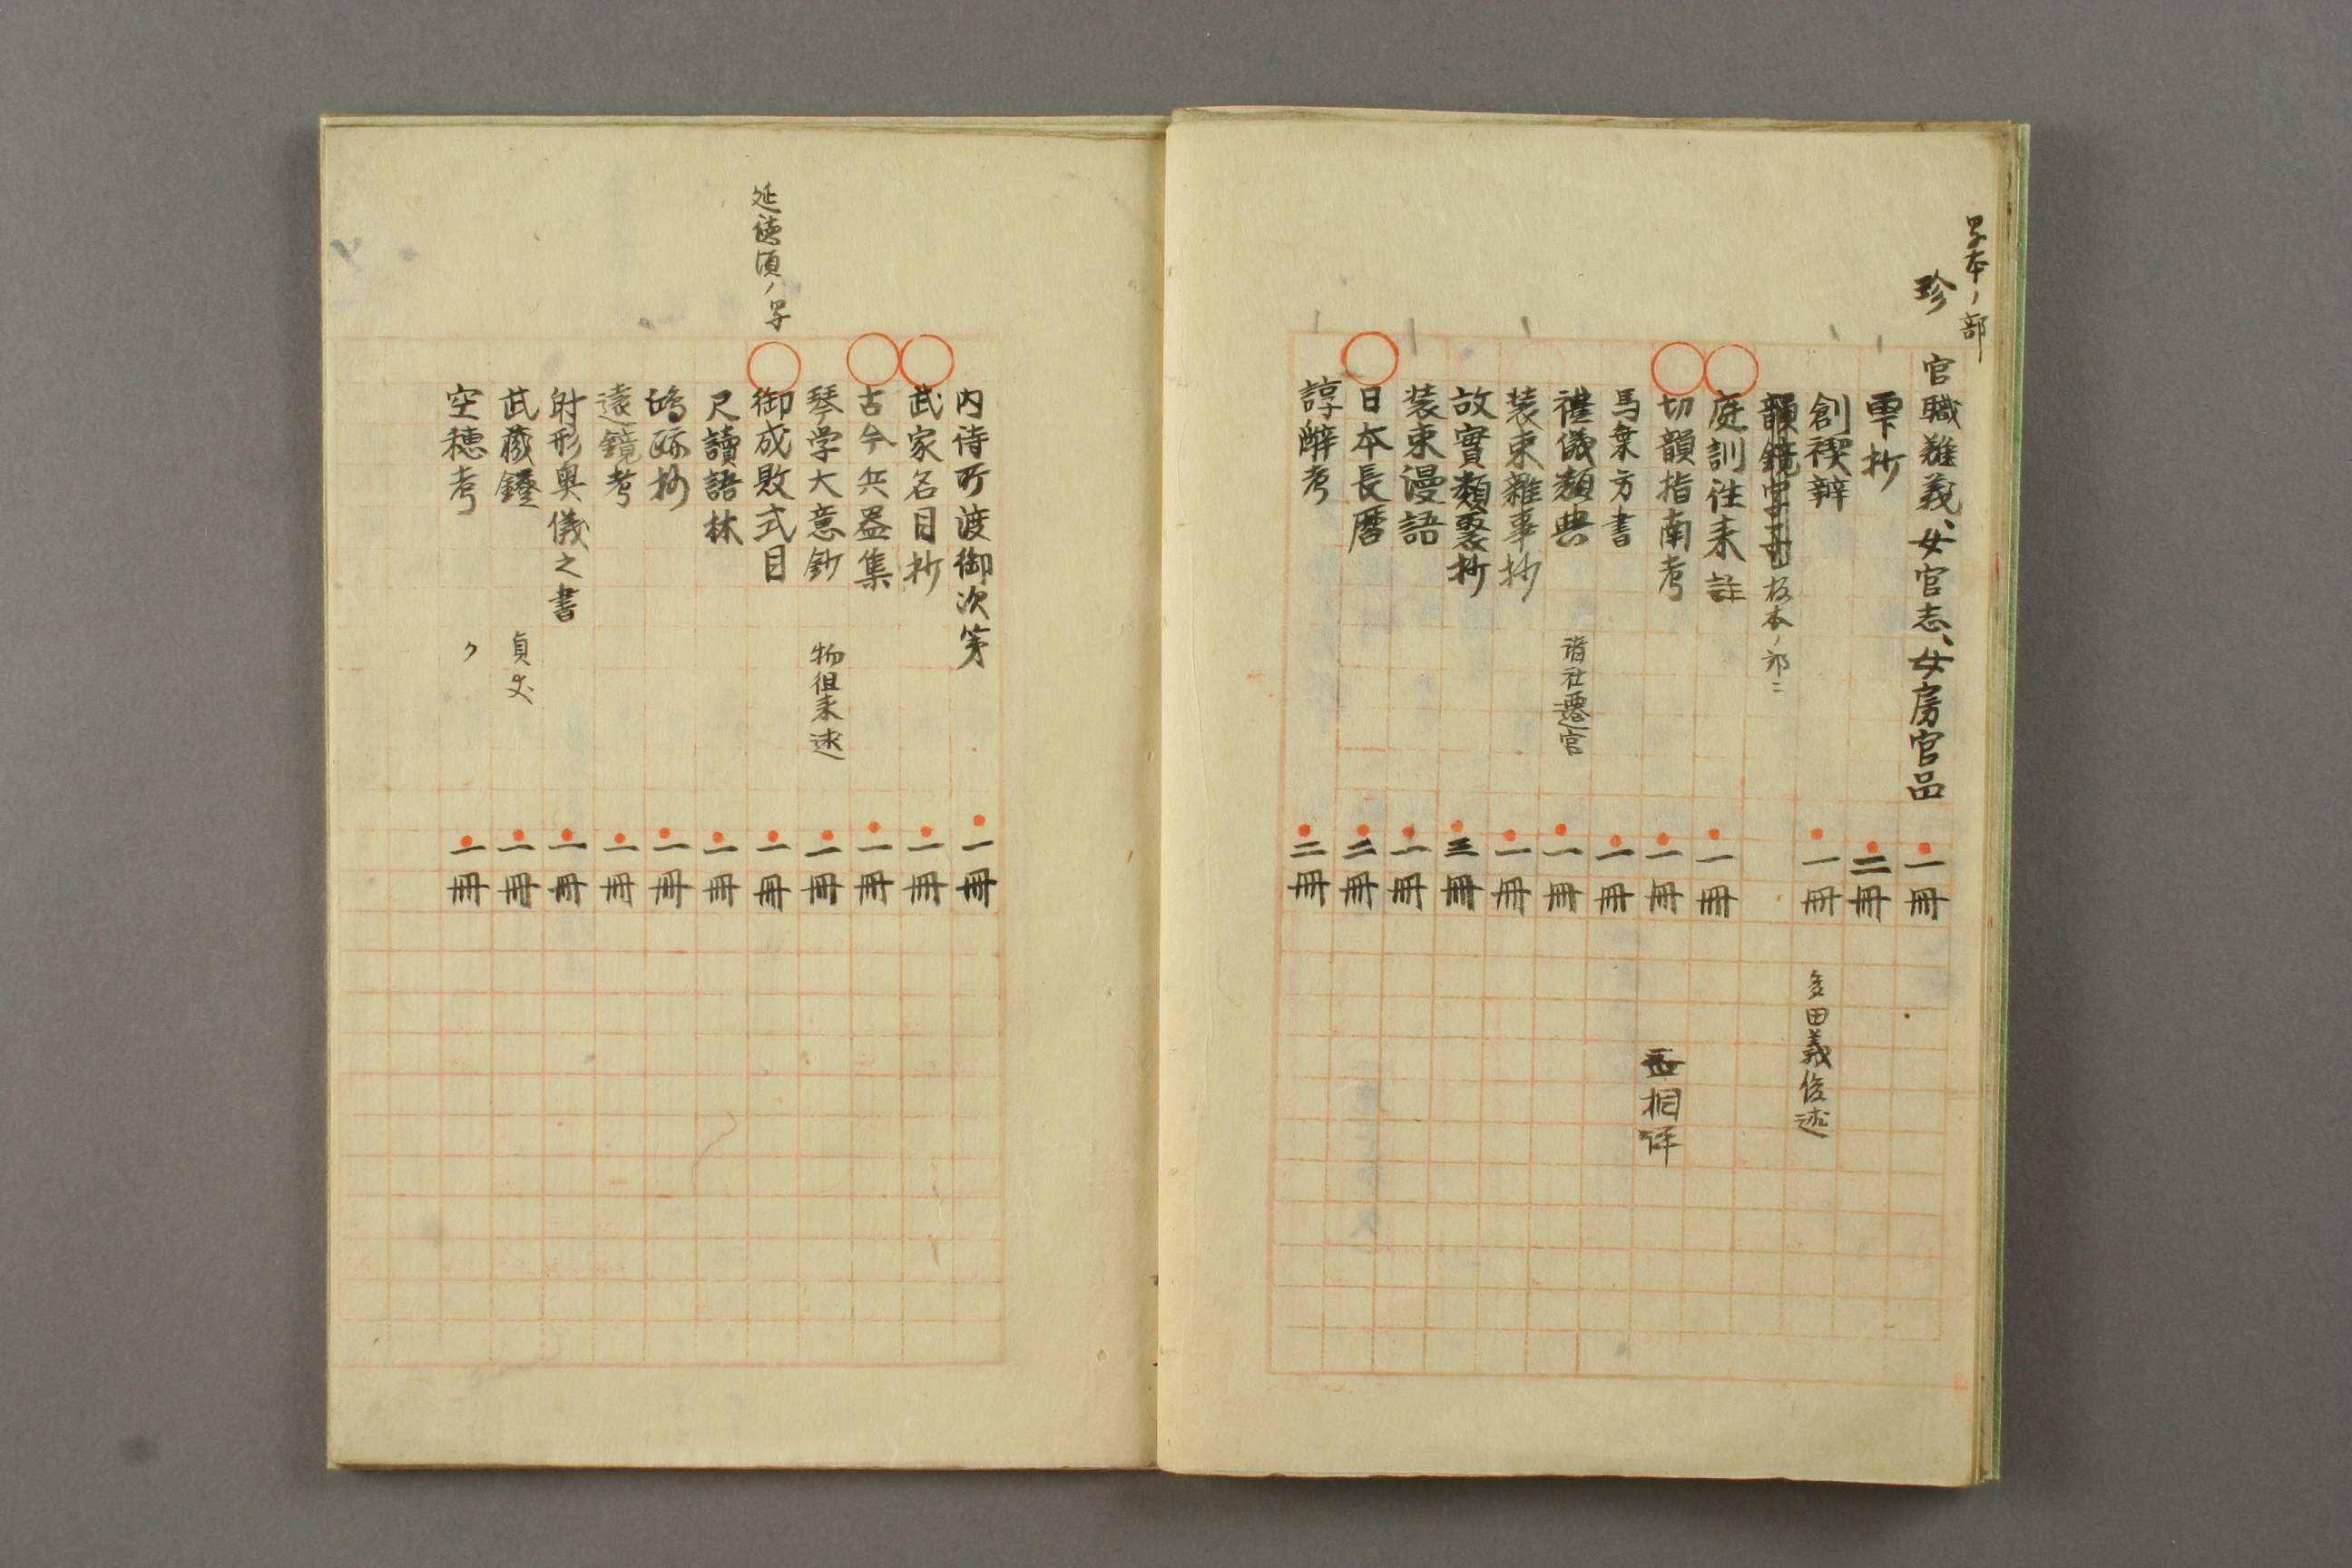 写本ノ部
珍
官職難義、女官志、女房官品 一冊
雫抄 二冊
創禊辨 一冊 多田義俊述
韻鏡字子 板本ノ部ニ
庭訓往来註 一冊
切韻指南考 一冊 桐譯
馬藥方書 一冊
禮儀類典 諸社遷宮 一冊
装束雜事抄 一冊
故實類聚抄 三冊
装束漫語 一冊
日本長暦 二冊
諄辭考 二冊
内侍所渡御次第 一冊
武家名目抄 一冊
古今兵器集 一冊
琴学大意鈔 物徂来述 一冊
延徳頃ノ写
御成敗式目 一冊
尺讀語林 一冊
鴻跡抄 一冊
遠鏡考 一冊
射形奥儀之書 一冊
武蔵鐙 貞丈 一冊
空穂考 〃 一冊